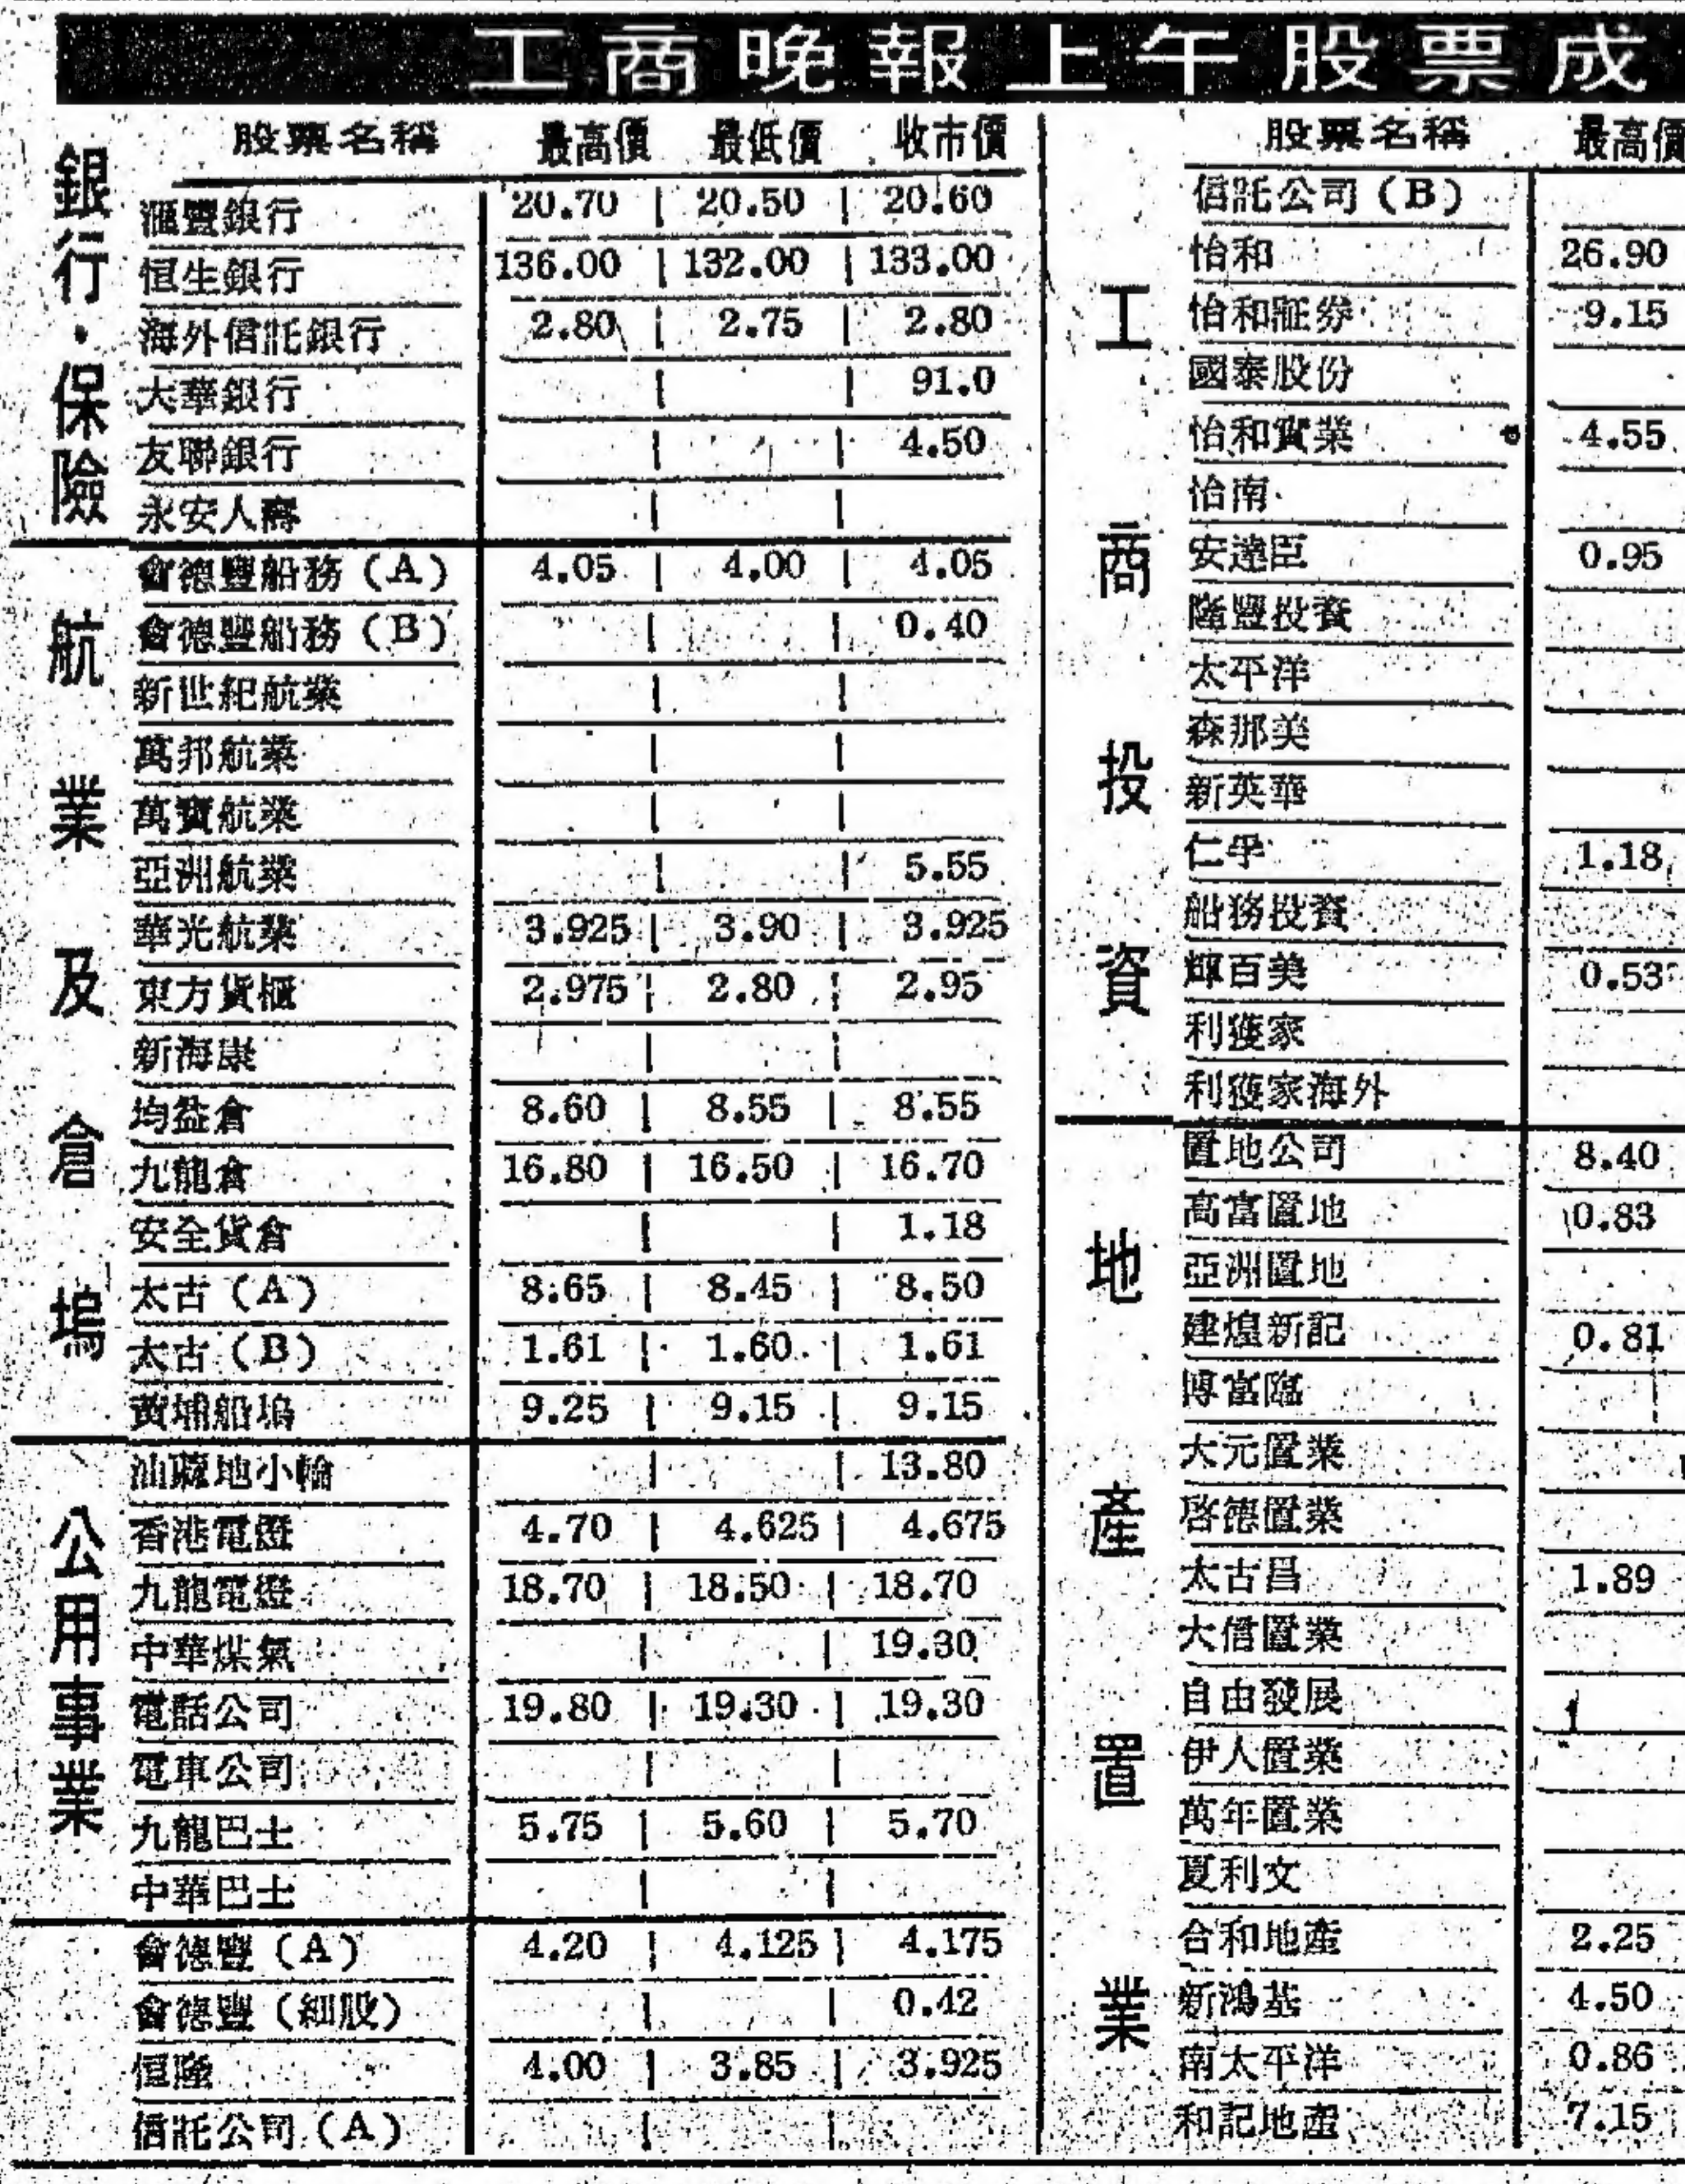 工商晚報上午股票成
銀行·保險
股票名稱 最高價 最低價 收市價
滙豐銀行 20.70 20.50 20.60
恒生銀行 136.00 132.00 133.00
海外信託銀行 2.80 2.75 2.80
大華銀行 91.0
友聯銀行 4.50
永安人壽
航業及倉塢
會德豐船務(A) 4.05 4.00 4.05
會德豐船務(B) 0.40
新世紀航業
萬邦航業
萬寶航業
亞洲航業 5.55
華光航業 3.925 3.90 3.925
東方貨櫃 2.975 2.80 2.95
新海康
均益倉 8.60 8.55 8.55
九龍倉 16.80 16.50 16.70
安全貨倉 1.18
太古(A) 8.65 8.45 8.50
太古(B) 1.61 1.60 1.61
黃埔船塢 9.25 9.15 9.15
公用事業
油蔴地小輪 13.80
香港電燈 4.70 4.625 4.675
九龍電燈 18.70 18.50 18.70
中華煤氣 19.30
電話公司 19.80 19.30 19.30
電車公司
九龍巴士 5.75 5.60 5.70
中華巴士
會德豐(A) 4.20 4.125 4.175
會德豐(細股) 0.42
恒隆 4.00 3.85 3.925
信託公司(A)
工商投資
股票名稱 最高價
信託公司(B)
怡和 26.90
怡和証券 9.15
國泰股份
怡和實業 4.55
怡南
安達臣 0.95
隆豐投資
太平洋
森那美
新英華
仁孚 1.18
船務投資
輝百美 0.53
利獲家
利獲家海外
地產置業
置地公司 8.40
高富置地 0.83
亞洲置地
建煌新記 0.81
博富臨
大元置業
啓德置業
太古昌 1.89
大信置業
自由發展
伊人置業
萬年置業
夏利文
合和地產 2.25
新鴻基 4.50
南太平洋 0.86
和記地產 7.15